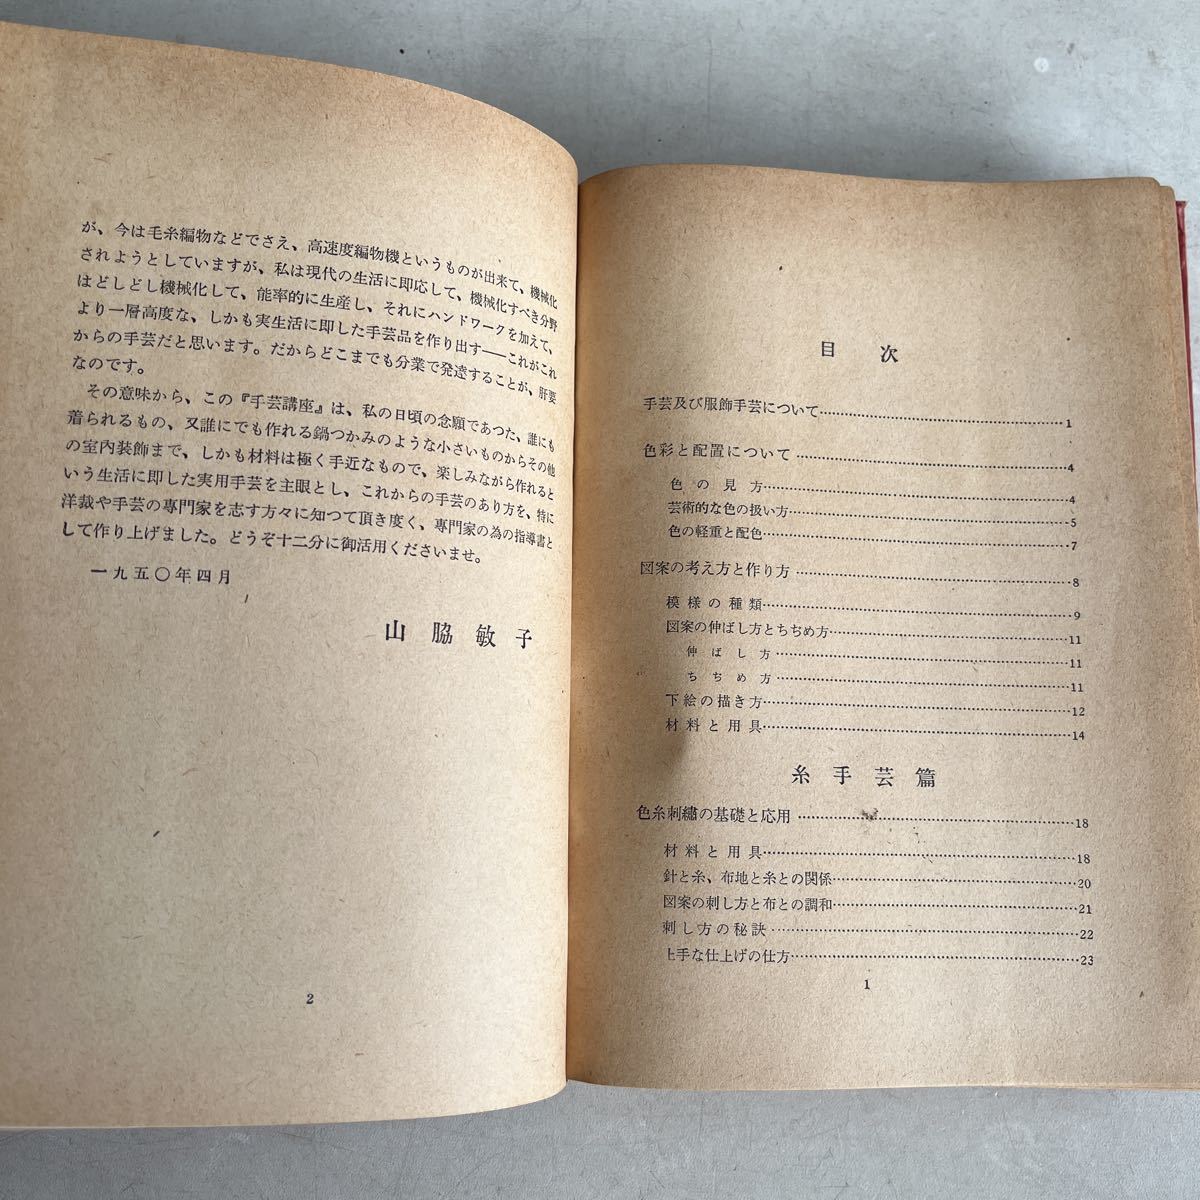 が、今は毛糸編物などでさえ、高速度編物機というものが出来て、機械化
されようとしていますが、私は現代の生活に即応して、機械化すべき分野
はどしどし機械化して、能率的に生産し、それにハンドワークを加えて、
より一層高度な、しかも実生活に即した手芸品を作り出す——これがこれ
からの手芸だと思います。だからどこまでも分業で発達することが、肝要
なのです。
その意味から、この『手芸講座』は、私の日頃の念願であつた、誰にも
着られるもの、又誰にでも作れる鍋つかみのような小さいものからその他
の室内装飾まで、しかも材料は極く手近なもので、楽しみながら作れると
いう生活に即した実用手芸を主眼とし、これからの手芸のあり方を、特に
洋裁や手芸の専門家を志す方々に知つて頂き度く、専門家の為の指導書と
して作り上げました。どうぞ十二分に御活用くださいませ。
一九五〇年四月
山脇敏子
2
目次
手芸及び服飾手芸について……………1
色彩と配置について……………4
色の見方……………4
芸術的な色の扱い方……………5
色の軽重と配色……………7
図案の考え方と作り方……………8
模様の種類……………9
図案の伸ばし方とちぢめ方……………11
伸ばし方……………11
ちぢめ方……………11
下絵の描き方……………12
材料と用具……………14
糸手芸篇
色糸刺繡の基礎と応用……………18
材料と用具……………18
針と糸、布地と糸との関係……………20
図案の刺し方と布との調和……………21
刺し方の秘訣……………22
上手な仕上げの仕方……………23
1